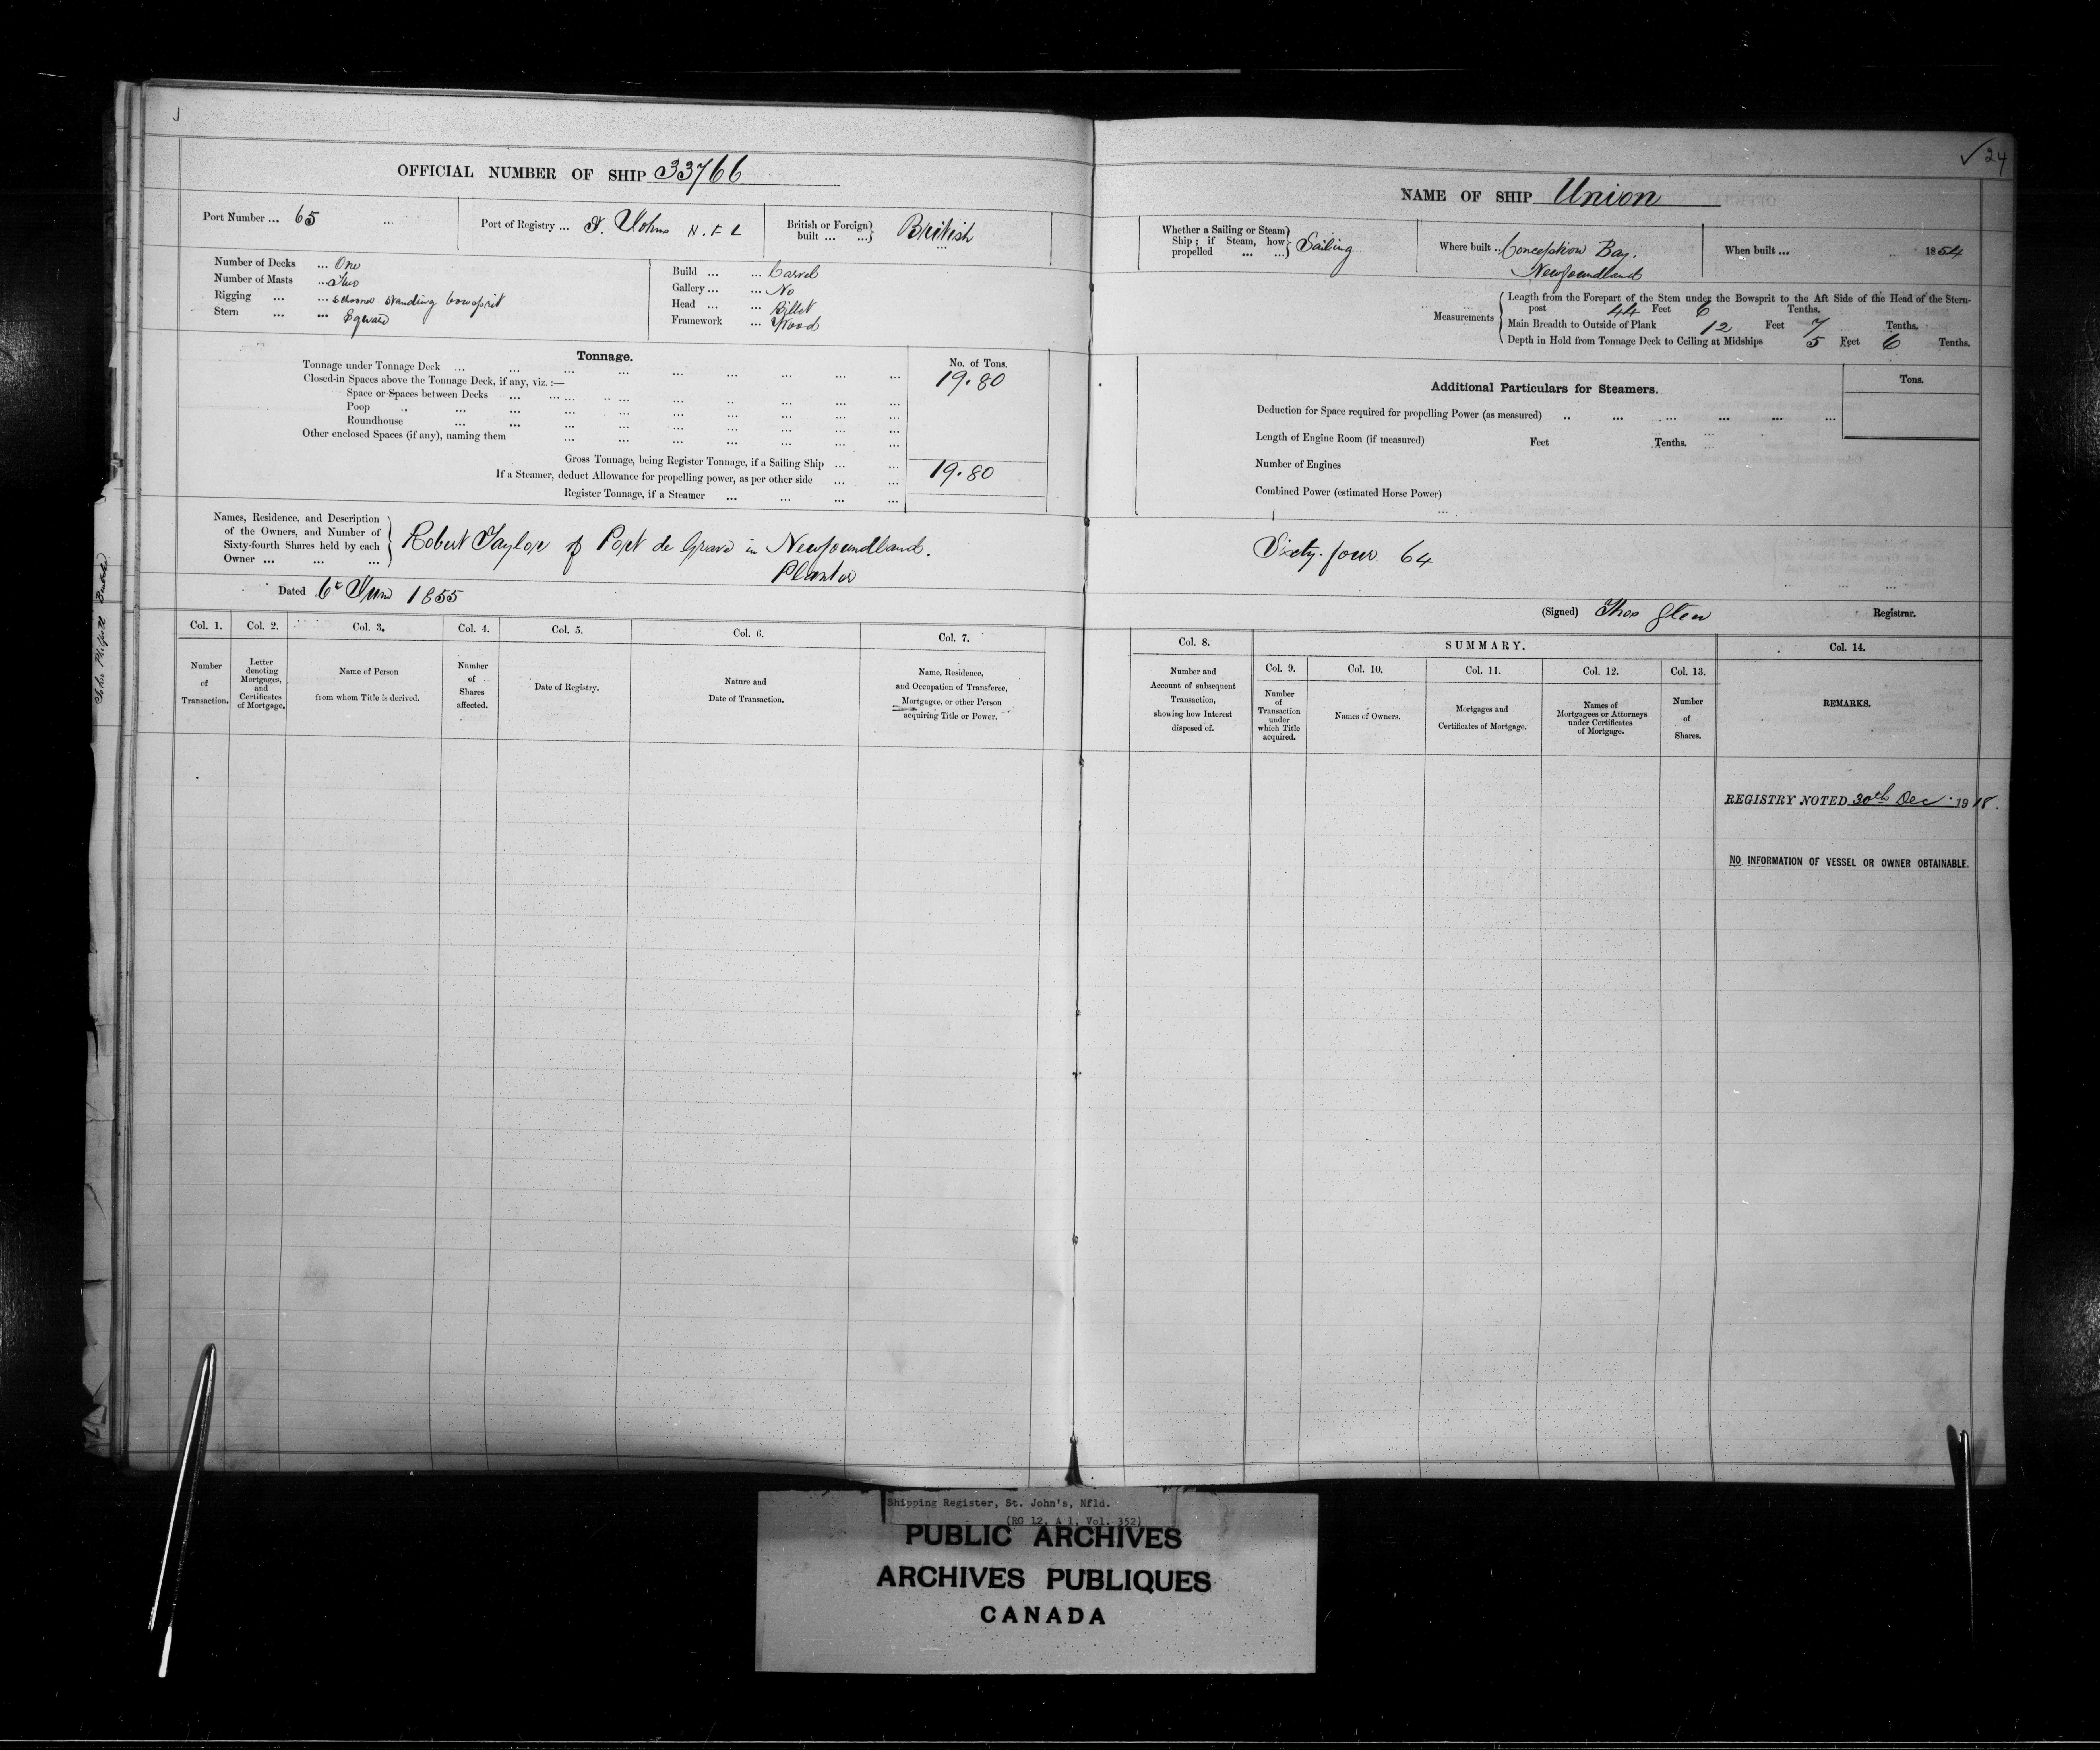 ✓ 24
OFFICIAL NUMBER OF SHIP 33766
Port Number ... 65
Port of Registry ... St. Johns N.F.L
British or Foreign built ... ...} British
Number of Decks ... One
Number of Masts ... Two
Rigging ... ... Schooner standing bowsprit
Stern ... ... Square
Build ... ... Carvel
Gallery ... ... No
Head ... ... Billet
Framework ... Wood
Tonnage.
No. of Tons.
Tonnage under Tonnage Deck ... 19.80
Closed-in Spaces above the Tonnage Deck, if any, viz. :—
Space or Spaces between Decks ...
Poop ...
Roundhouse ...
Other enclosed Spaces (if any), naming them ...
Gross Tonnage, being Register Tonnage, if a Sailing Ship ... ... 19.80
If a Steamer, deduct Allowance for propelling power, as per other side ... ...
Register Tonnage, if a Steamer ... ... ... ...
Names, Residence, and Description
of the Owners, and Number of
Sixty-fourth Shares held by each
Owner ... ... ...
Robert Taylor of Port de Grave in Newfoundland.
Planter
Dated 6th June 1855
Col. 1. Col. 2. Col. 3. Col. 4. Col. 5. Col. 6. Col. 7.
Number of Transaction.
Letter denoting Mortgages, and Certificates of Mortgage.
Name of Person from whom Title is derived.
Number of Shares affected.
Date of Registry.
Nature and Date of Transaction.
Name, Residence, and Occupation of Transferee, Mortgagee, or other Person acquiring Title or Power.
NAME OF SHIP Union
Whether a Sailing or Steam Ship; if Steam, how propelled ... ...} Sailing
Where built .. Conception Bay.
Newfoundland
When built ... ... 1854
Measurements
Length from the Forepart of the Stem under the Bowsprit to the Aft Side of the Head of the Stern-
post 44 Feet 6 Tenths.
Main Breadth to Outside of Plank 12 Feet 7 Tenths.
Depth in Hold from Tonnage Deck to Ceiling at Midships 5 Feet 6 Tenths.
Additional Particulars for Steamers.
Tons.
Deduction for Space required for propelling Power (as measured) ...
Length of Engine Room (if measured) Feet Tenths.
Number of Engines
Combined Power (estimated Horse Power)
Sixty-four 64
(Signed) Thos Glen Registrar.
Col. 8. SUMMARY. Col. 14.
Col. 9. Col. 10. Col. 11. Col. 12. Col. 13.
Number and Account of subsequent Transaction, showing how Interest disposed of.
Number of Transaction under which Title acquired.
Names of Owners.
Mortgages and Certificates of Mortgage.
Names of Mortgagees or Attorneys under Certificates of Mortgage.
Number of Shares.
REMARKS.
REGISTRY NOTED 30th Dec. 1918.
NO INFORMATION OF VESSEL OR OWNER OBTAINABLE.
Shipping Register, St. John's, Nfld.
(RG 12, A 1, Vol. 352)
PUBLIC ARCHIVES
ARCHIVES PUBLIQUES
CANADA